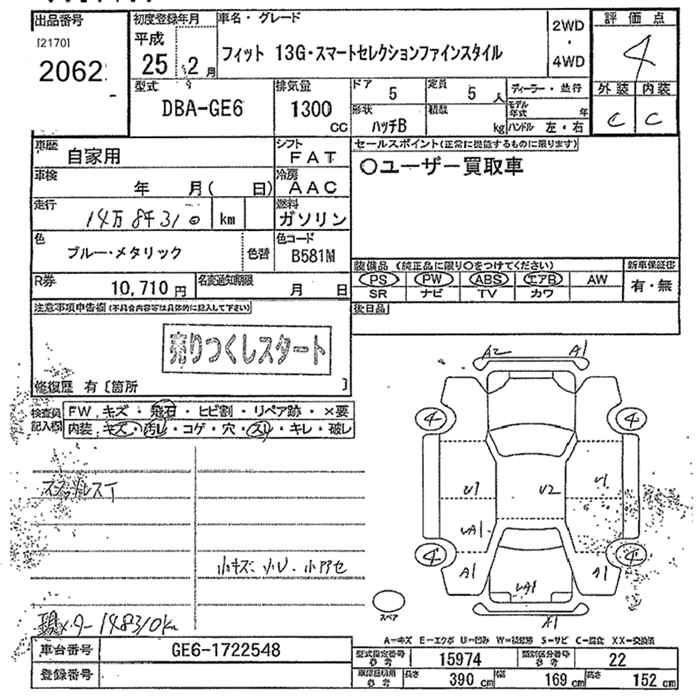 出品番号 初度登録年月 車名・グレード 2WD・4WD 評価点
[2170] 平成 フィット 13G・スマートセレクションファインスタイル 4
2062 25 2月
型式 排気量 ドア 定員 ディーラー・並行 外装 内装
DBA-GE6 1300 CC 5 5人 モデル年式 年 C C
形状 積数 kg ハンドル 左・右
ハッチB
車歴 自家用 シフト FAT セールスポイント(正常に機能するものに限ります)
車検 年 月( 日) 冷房 AAC 〇ユーザー買取車
走行 14万8千310 km 燃料 ガソリン
色 ブルー・メタリック 色替 色コード B581M
装備品 (純正品に限り〇をつけてください) 新車保証書
R券 10,710円 名変通知期限 月 日 PS PW ABS エアB AW 有・無
SR ナビ TV カワ
注意事項申告欄(不具合内容等は具体的に記入して下さい) 後日品
売りつくしスタート
修復歴 有〔箇所 〕
A2 A1
検査員記入欄 FW.キズ・飛石・ヒビ割・リペア跡・×要
内装.キズ・汚レ・コゲ・穴・スレ・キレ・破レ
4 4
スタッドレスT U1 U2 U1
UA1
小キズ 小U. 小アセ
4 4
A1 UA1 A1
スペア A1
現メター148310km
A=キズ E=エクボ U=凹み W=補修跡 S=サビ C=腐食 XX=交換済
車台番号 GE6-1722548 型式指定番号 参考 15974 類別区分番号 参考 22
登録番号 参考 長さ 390cm 幅 169cm 高さ 152cm